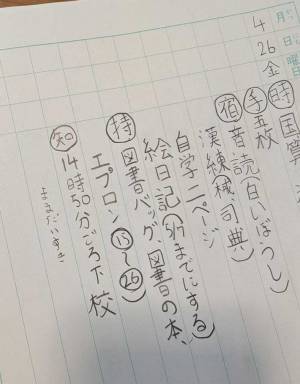 4月26日金曜
時 国算
手 五枚
宿 音読(白いぼうし)
漢練械、司典
自学 二ページ
絵日記(5/7までにする)
持 図書バッグ、図書の本、
エプロン(⑮〜㉖)
知 14時50分ごろ下校
ままだいすき